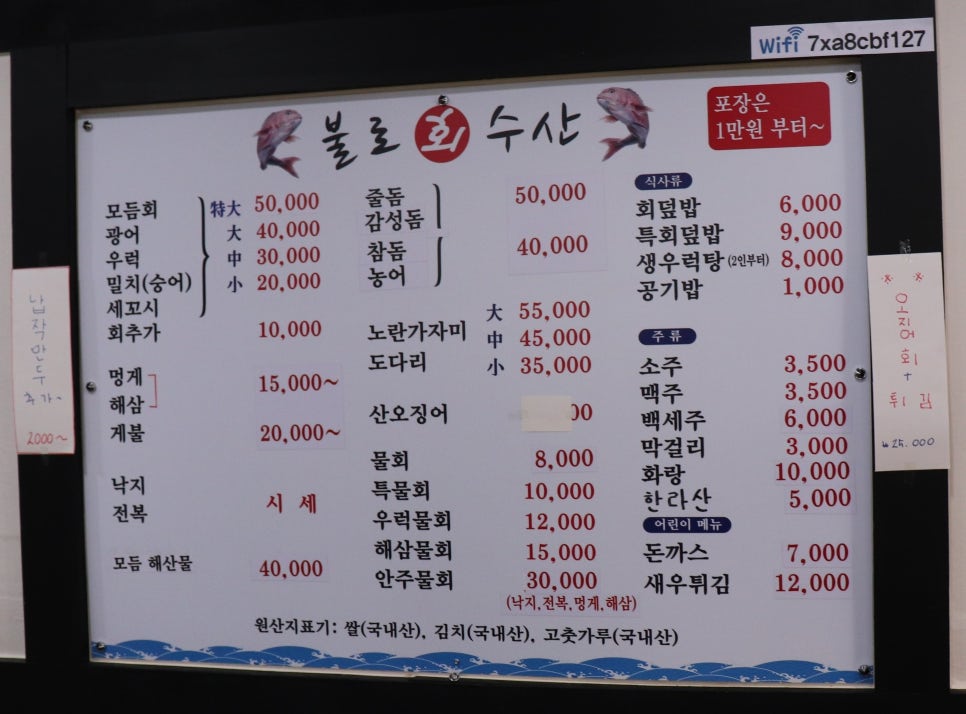 Wifi 7xa8cbf127
불로 회 수산
포장은
1만원 부터~
모듬회
광어
우럭
밀치(숭어)
세꼬시
特大 50,000
大 40,000
中 30,000
小 20,000
회추가 10,000
멍게
해삼
15,000~
게불 20,000~
낙지
전복
시 세
모듬 해산물 40,000
줄돔
감성돔
50,000
참돔
농어
40,000
노란가자미
도다리
大 55,000
中 45,000
小 35,000
산오징어 00
물회 8,000
특물회 10,000
우럭물회 12,000
해삼물회 15,000
안주물회 30,000
(낙지,전복,멍게,해삼)
식사류
회덮밥 6,000
특회덮밥 9,000
생우럭탕 (2인부터) 8,000
공기밥 1,000
주 류
소주 3,500
맥주 3,500
백세주 6,000
막걸리 3,000
화랑 10,000
한라산 5,000
어린이 메뉴
돈까스 7,000
새우튀김 12,000
원산지표기: 쌀(국내산), 김치(국내산), 고춧가루(국내산)
납작만두
추가~
2000~
오징어회
+
튀김
25.000